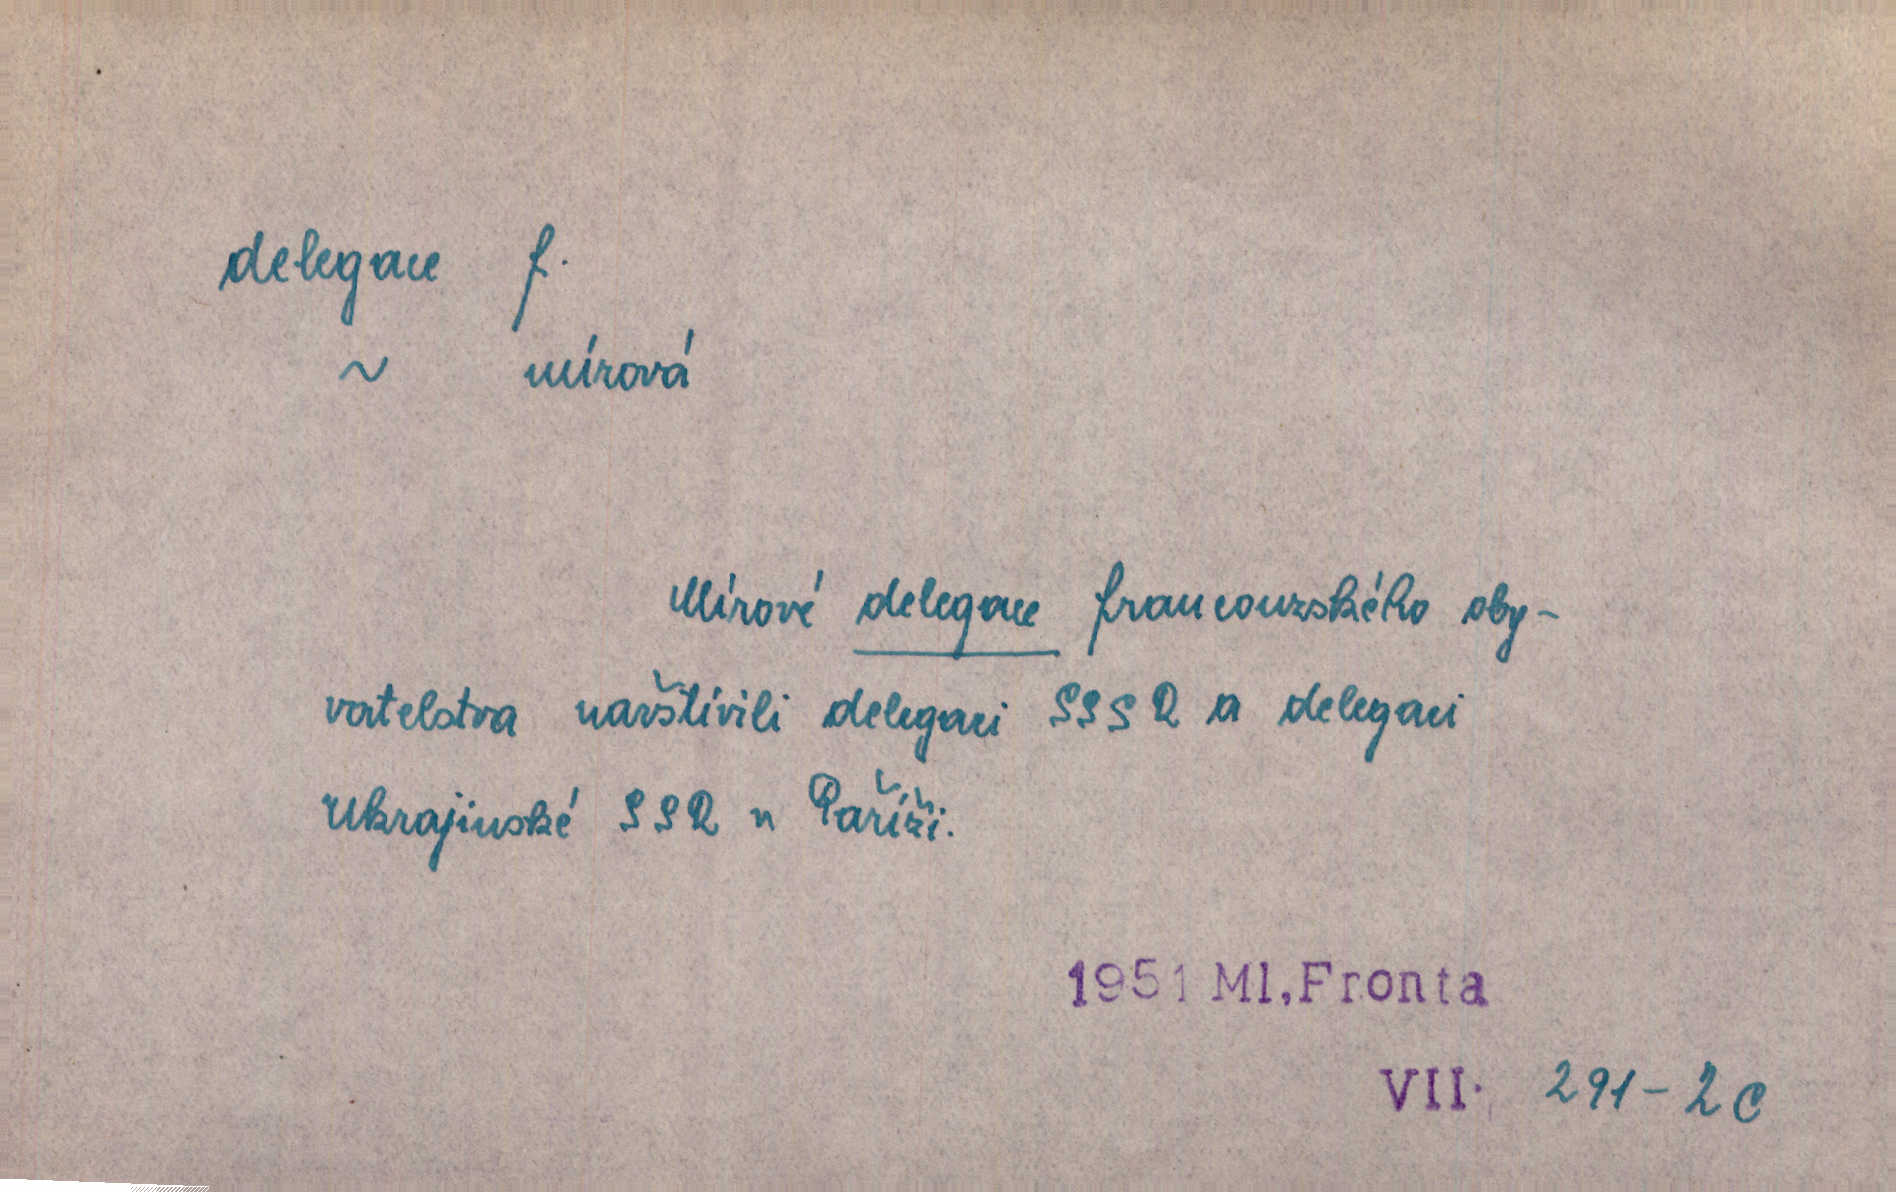 delegace f.
~ mírová
Mírové delegace francouzského oby-
vatelstva navštívili delegaci SSSR a delegaci
Ukrajinské SSR v Paříži.
1951 Ml,Fronta
VII. 291-2c